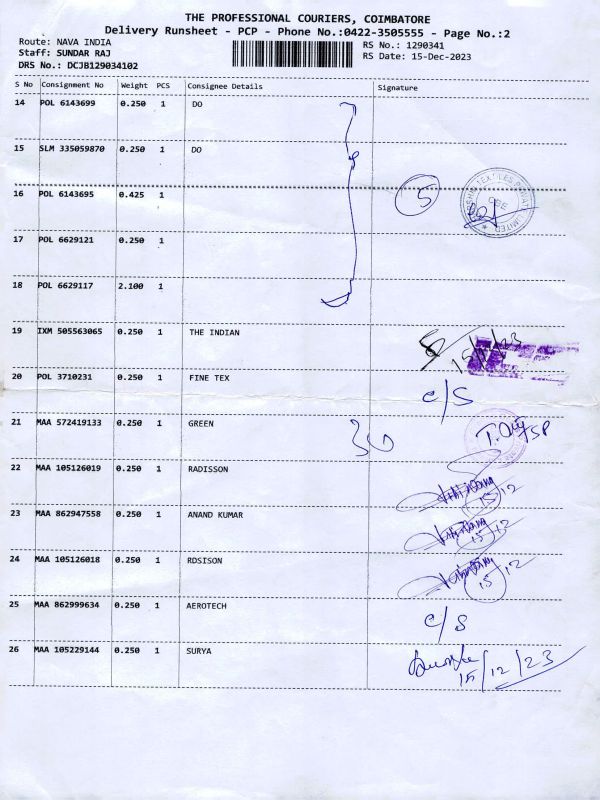 THE PROFESSIONAL COURIERS, COIMBATORE
Delivery Runsheet - PCP - Phone No.:0422-3505555 - Page No.:2
Route: NAVA INDIA RS No.: 1290341
Staff: SUNDAR RAJ RS Date: 15-Dec-2023
DRS No.: DCJB129034102
S No Consignment No Weight PCS Consignee Details Signature
14 POL 6143699 0.250 1 DO
15 SLM 335059870 0.250 1 DO
16 POL 6143695 0.425 1 5
17 POL 6629121 0.250 1
18 POL 6629117 2.100 1
19 IXM 505563065 0.250 1 THE INDIAN
20 POL 3710231 0.250 1 FINE TEX C/S
21 MAA 572419133 0.250 1 GREEN
22 MAA 105126019 0.250 1 RADISSON 15/12
23 MAA 862947558 0.250 1 ANAND KUMAR 15/12
24 MAA 105126018 0.250 1 RDSISON 15/12
25 MAA 862999634 0.250 1 AEROTECH C/S
26 MAA 105229144 0.250 1 SURYA 15/12/23